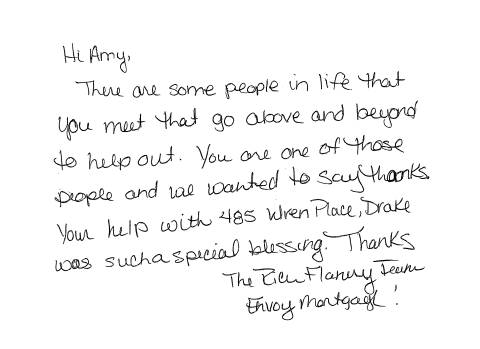 Hi Amy,
There are some people in life that
you meet that go above and beyond
to help out. You are one of those
people and we wanted to say thanks.
Your help with 485 Wren Place, Drake
was such a special blessing. Thanks
The Flanury Team
Envoy Mortgage!